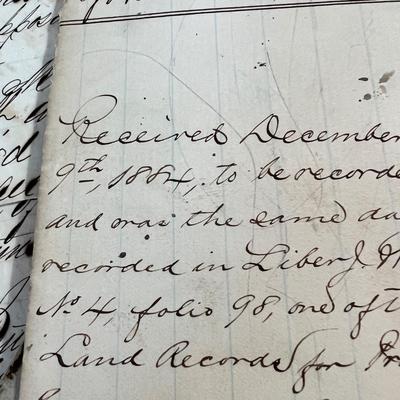 Received December
9th, 1884, to be recorde
and was the same da
recorded in Liber J.
No 4, folio 98, one of t
Land Records for Pr